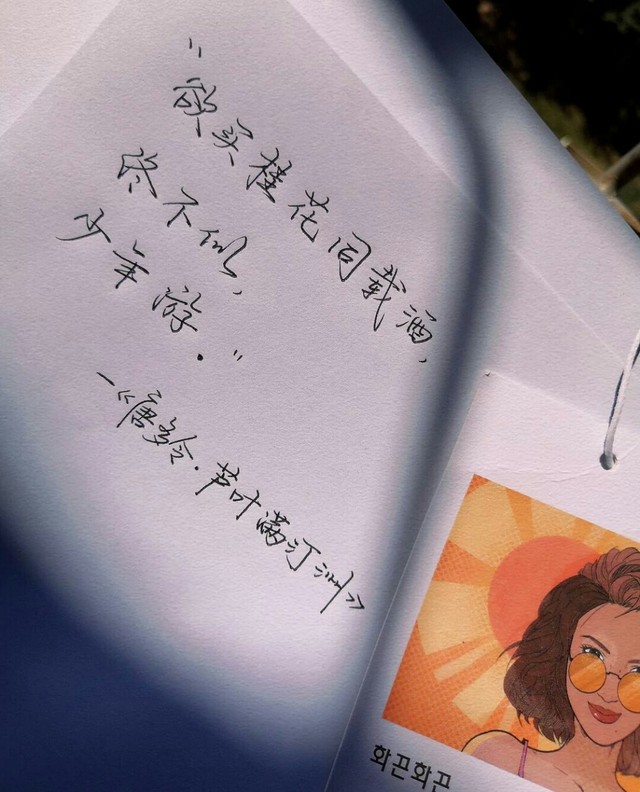 "欲买桂花同载酒,
终不似,
少年游."
—《唐多令·芦叶满汀洲》
화끈화끈